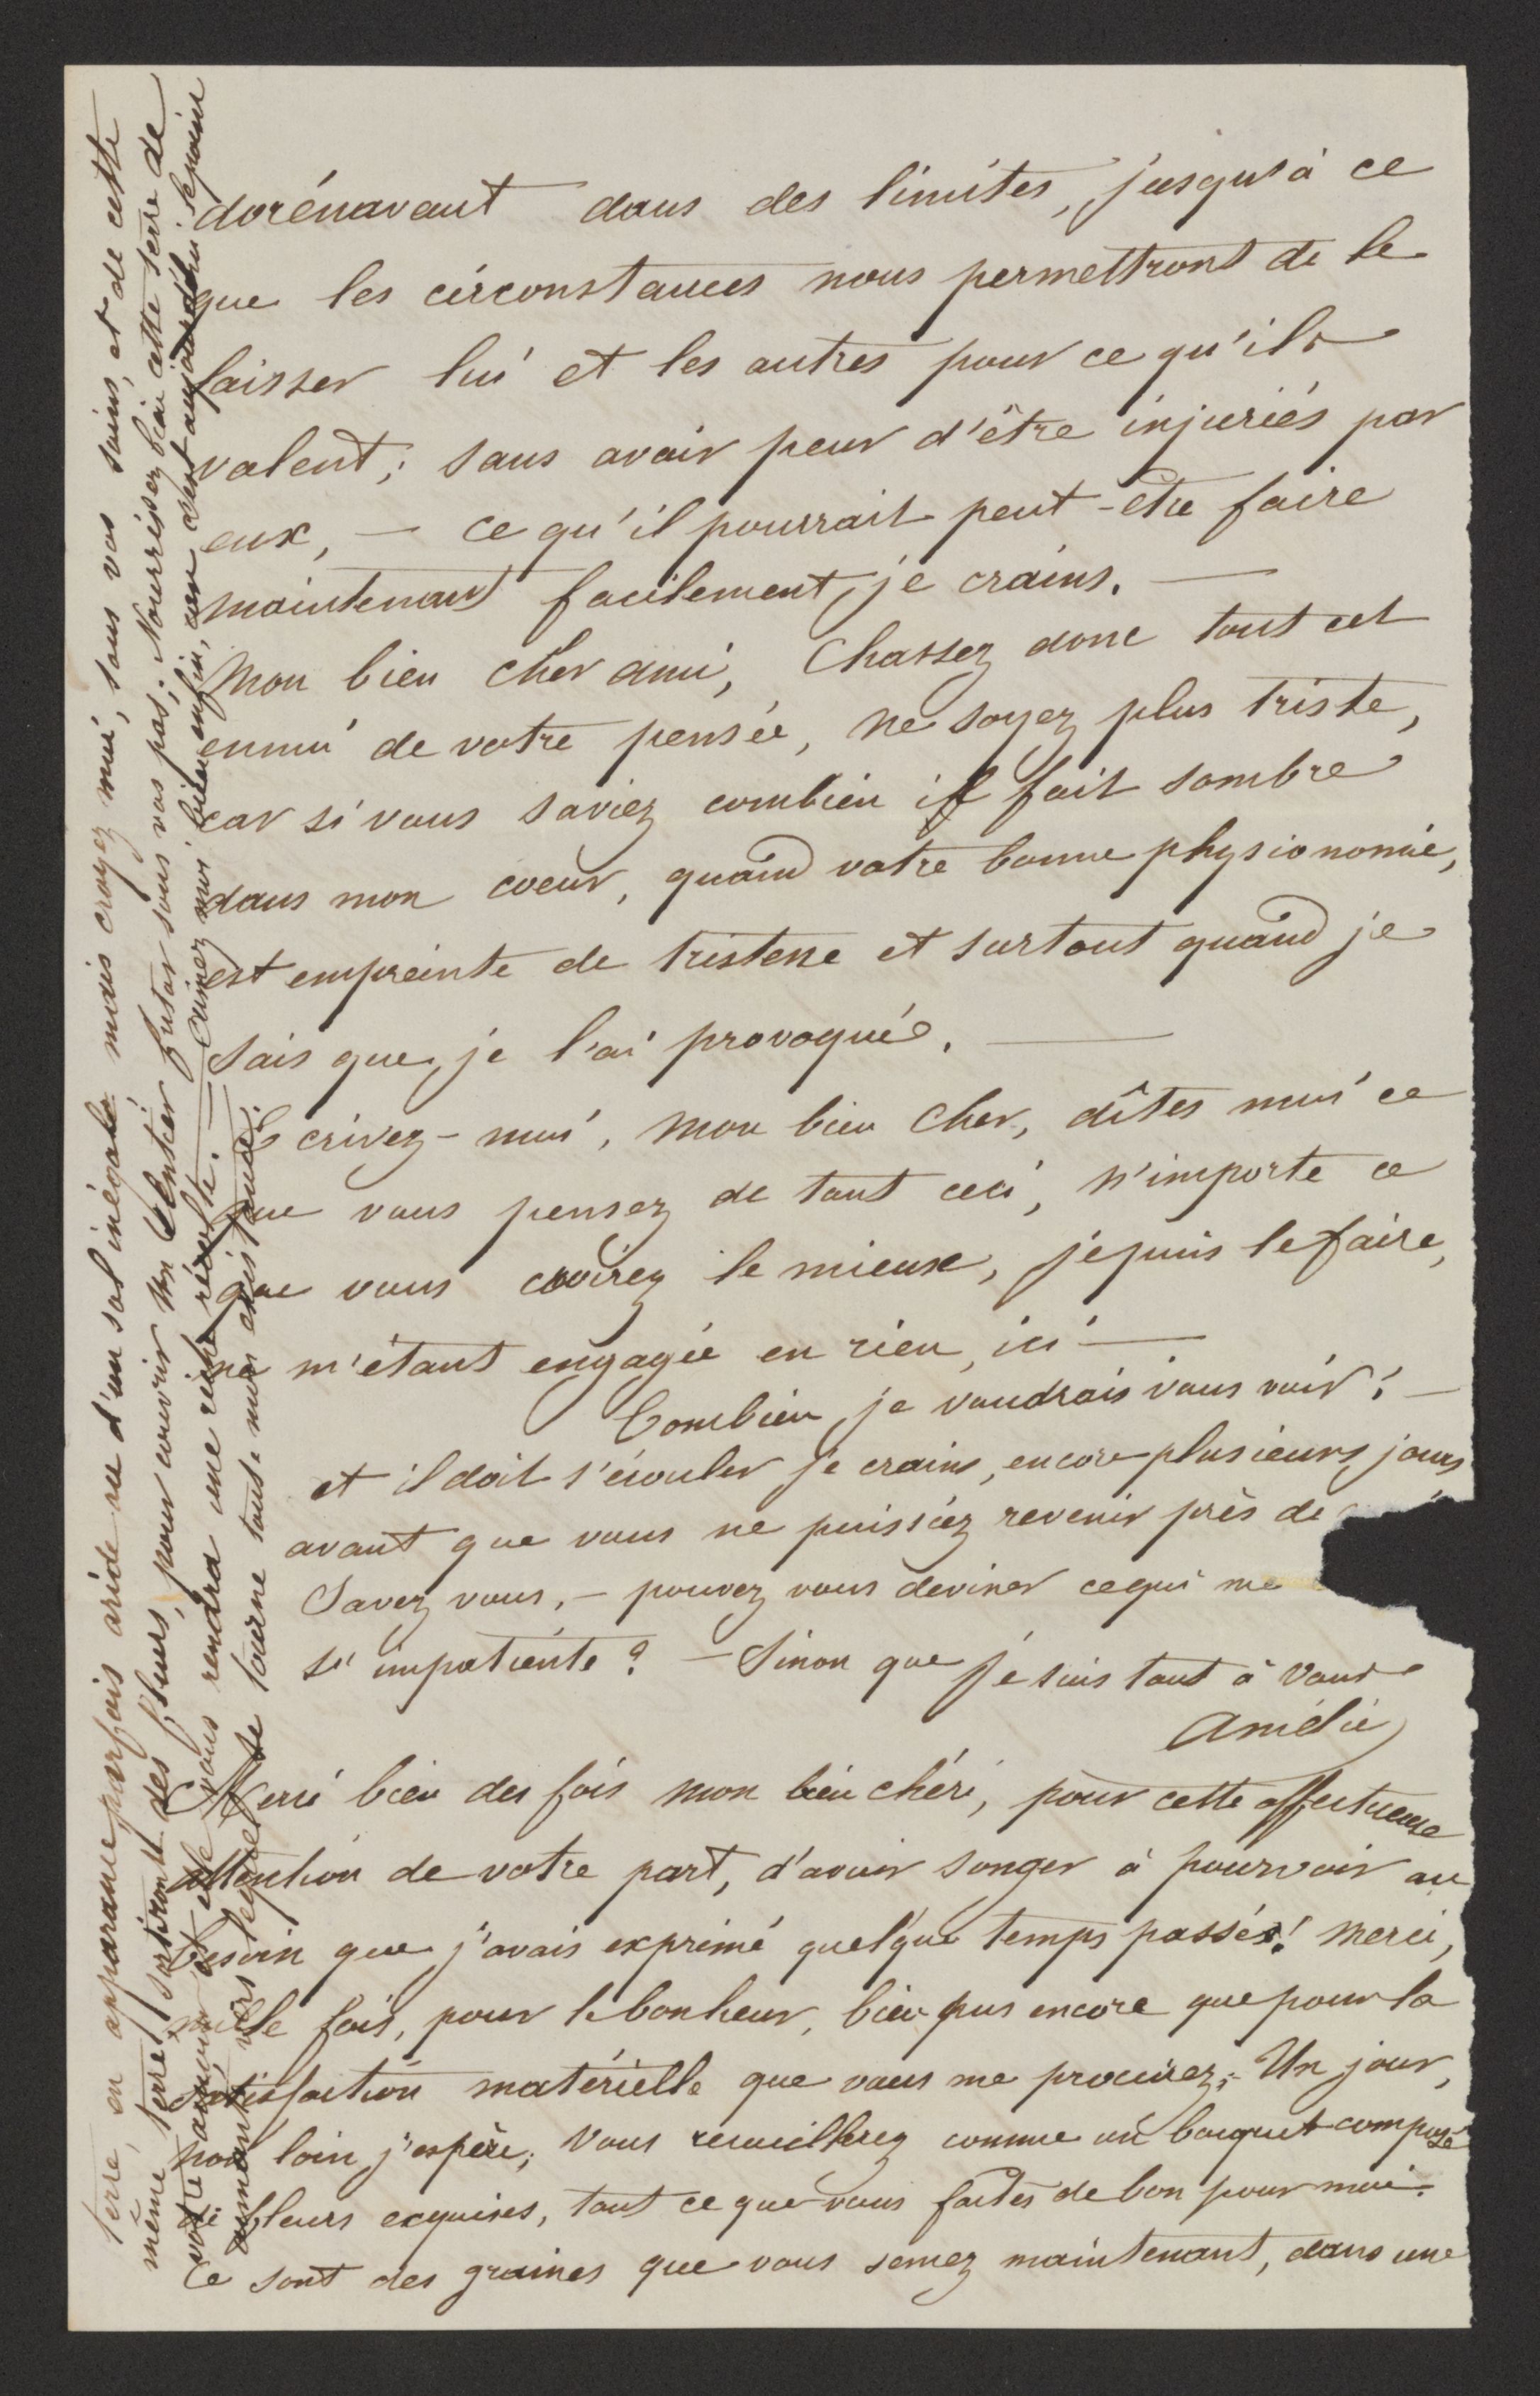 dorénavant dans des limites, jusqu'à ce
que les circonstances nous permettront de le
laisser lui et les autres pour ce qu'ils
valent; sans avoir peur d'être injuriés par
eux, — ce qu'il pourrait peut-être faire
maintenant facilement, je crains. —
Mon bien cher ami, Chassez donc tout cet
ennui de votre pensée, ne soyez plus triste,
car si vous saviez combien il fait sombre
dans mon coeur, quand votre bonne physionomie,
est empreinte de tristesse et surtout quand je
sais que je l'ai provoqué. —
Ecrivez-moi, mon bien cher, dîtes moi ce
que vous pensez de tout ceci, n'importe ce
que vous croirez le mieux, je puis le faire,
ne m'étant engagée en rien, ici —
Combien je voudrais vous voir! —
et il doit s'écouler je crains, encore plusieurs jours
avant que vous ne puissiez revenir près de
Savez vous, — pouvez vous deviner ce qui me
s'impatiente? — Sinon que je suis tout à vous
Amélie
Merci bien des fois mon bien chéri, pour cette affectueuse
attention de votre part, d'avoir songer à pourvoir au
besoin que j'avais exprimé quelque temps passés! Merci,
mille fois, pour le bonheur, bien pus encore que pour la
satisfaction matérielle que vous me procurez; — Un jour,
non loin j'espère, vous recueillerez comme un bouquet composé
de fleurs exquises, tout ce que vous faites de bon pour moi.
Ce sont des graines que vous semez maintenant, dans une
terre, en apparance parfois aride ou d'un sol inégale mais croyez moi, sous vos soins, et de cette
même terre, sortiront des fleurs, pour couvrir un sentier futur sous vos pas; Nourrissez bien cette terre de
votre amour et elle vous rendra une riche récolte. — Aimez moi bien enfin, car c'est aujourd'hui le point
aimant vers lequel se tourne toute mon existance.